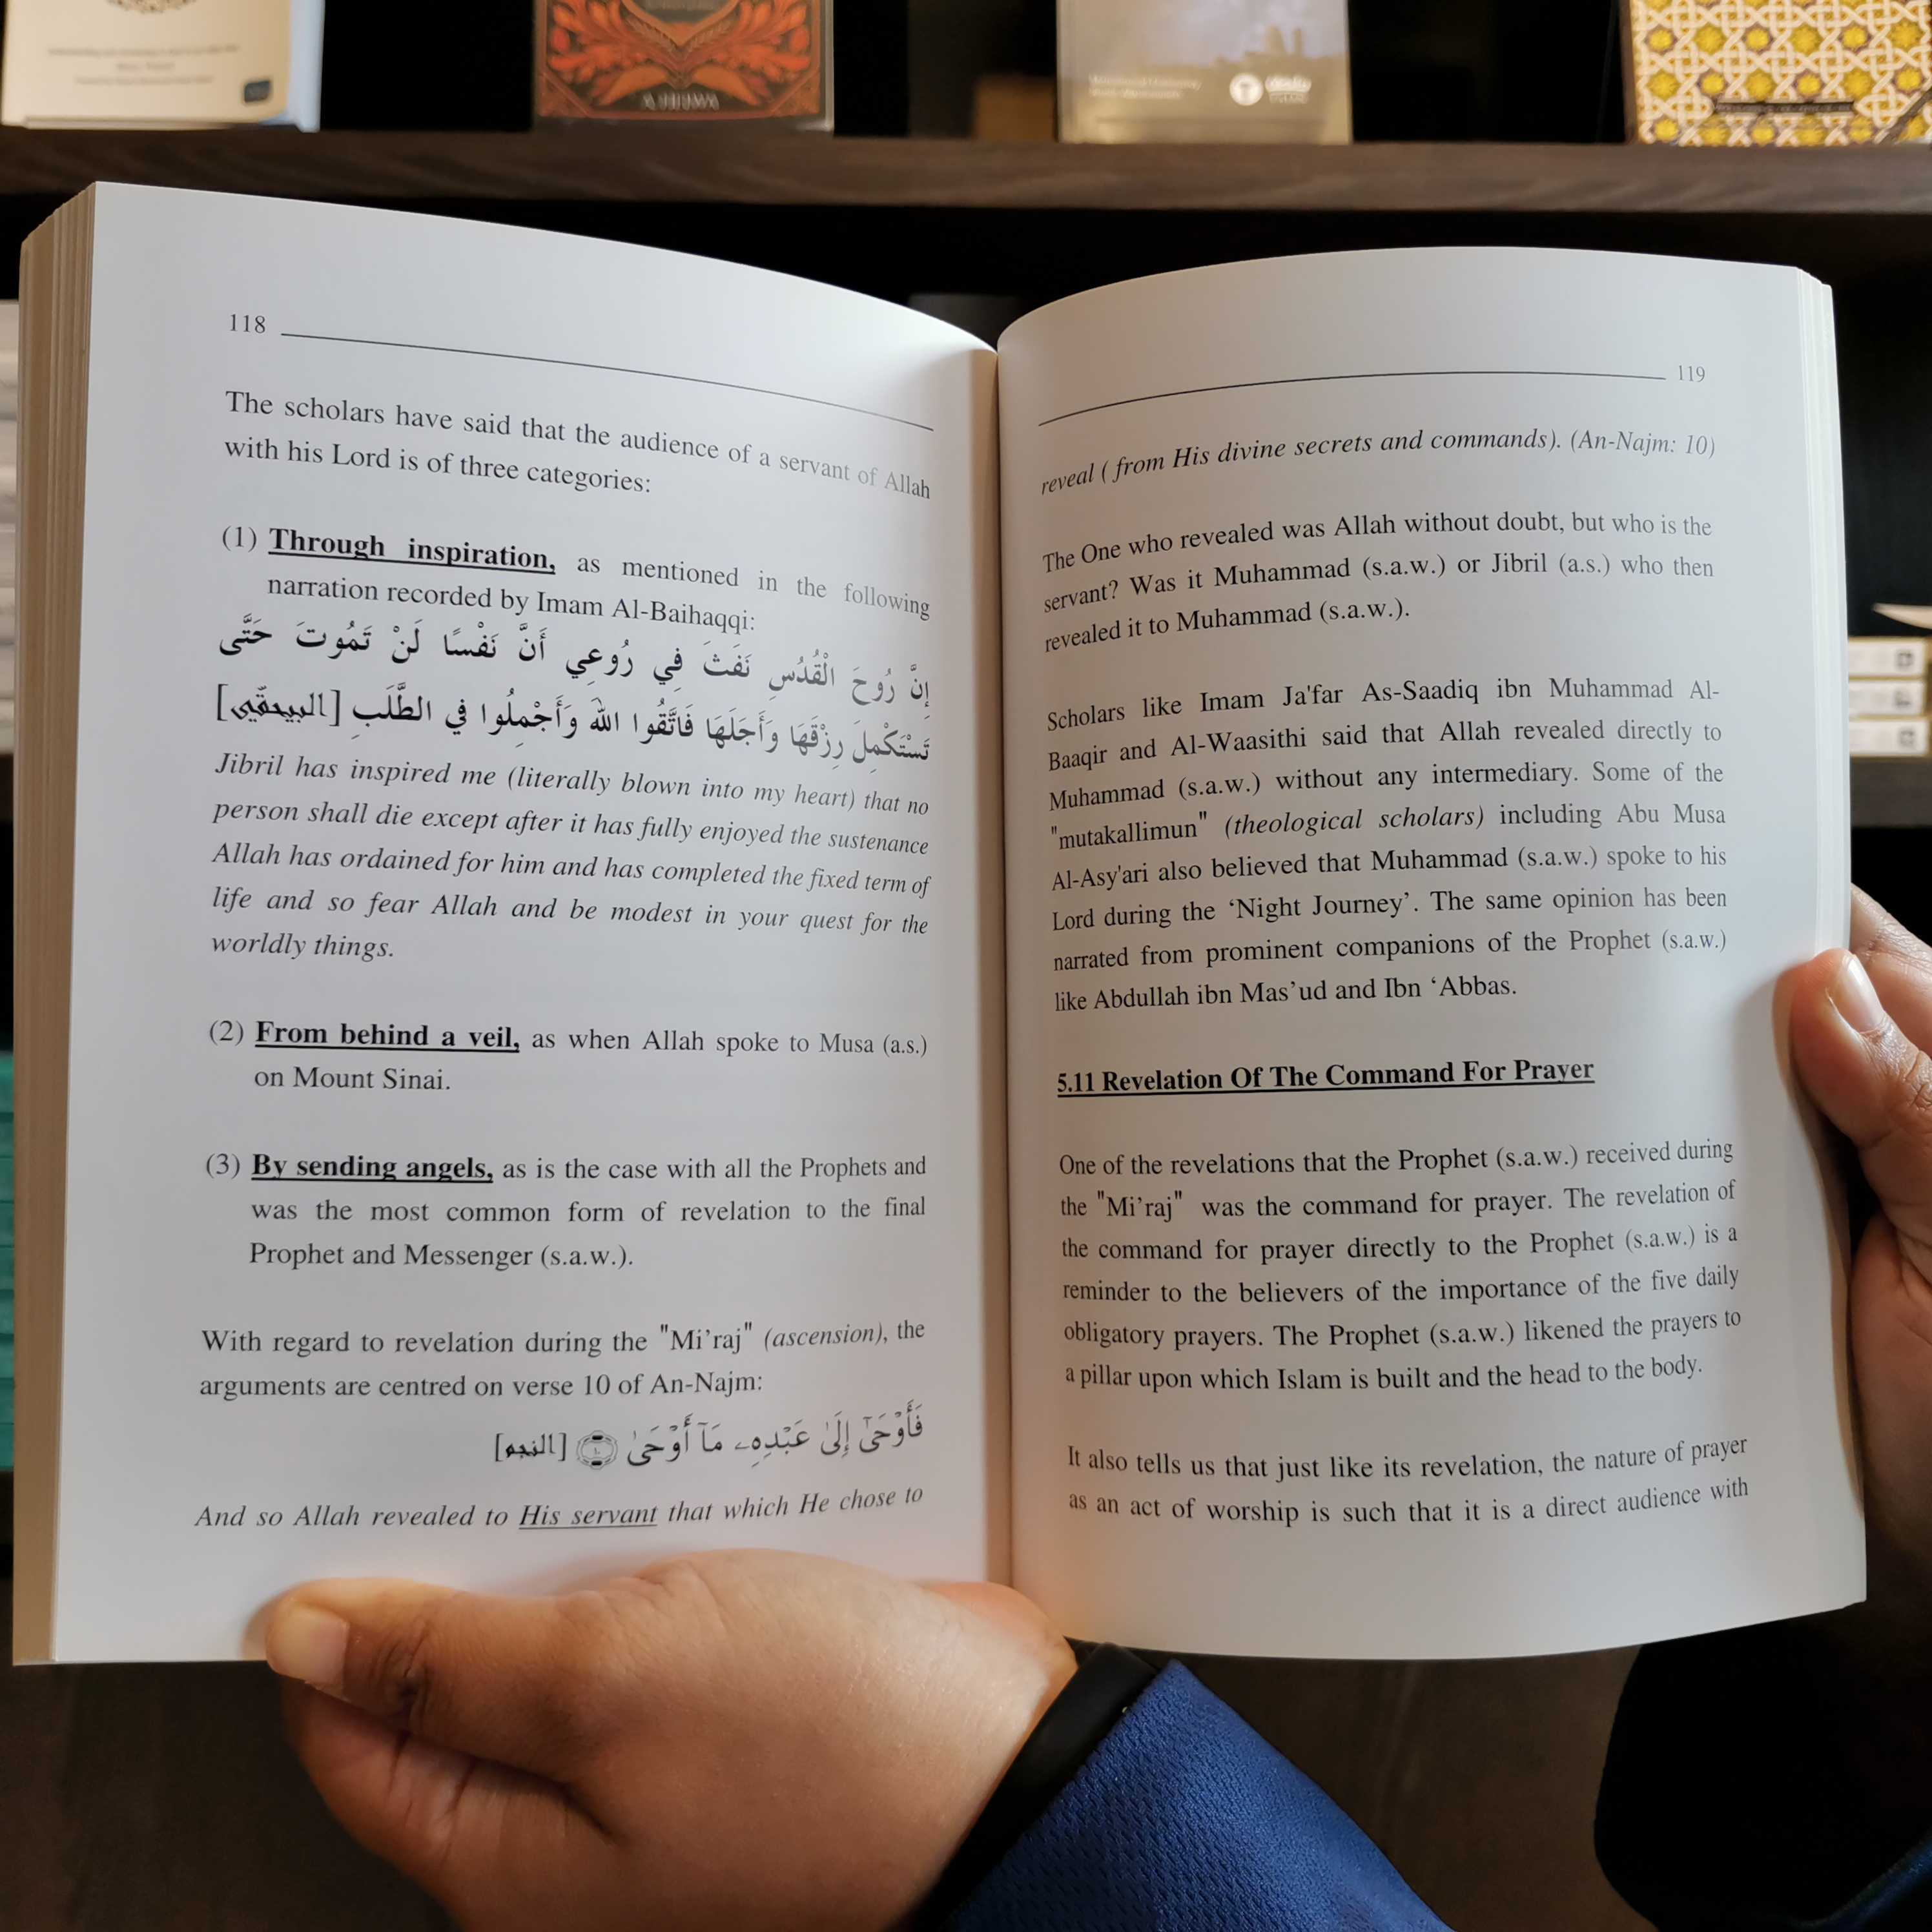 118
The scholars have said that the audience of a servant of Allah
with his Lord is of three categories:
(1) Through inspiration, as mentioned in the following
narration recorded by Imam Al-Baihaqqi:
إِنَّ رُوحَ الْقُدُسِ نَفَثَ فِي رُوعِي أَنَّ نَفْسًا لَنْ تَمُوتَ حَتَّى
تَسْتَكْمِلَ رِزْقَهَا وَأَجَلَهَا فَاتَّقُوا اللهَ وَأَجْمِلُوا فِي الطَّلَبِ [البيحقّي]
Jibril has inspired me (literally blown into my heart) that no
person shall die except after it has fully enjoyed the sustenance
Allah has ordained for him and has completed the fixed term of
life and so fear Allah and be modest in your quest for the
worldly things.
(2) From behind a veil, as when Allah spoke to Musa (a.s.)
on Mount Sinai.
(3) By sending angels, as is the case with all the Prophets and
was the most common form of revelation to the final
Prophet and Messenger (s.a.w.).
With regard to revelation during the "Mi’raj" (ascension), the
arguments are centred on verse 10 of An-Najm:
فَأَوْحَىٰٓ إِلَىٰ عَبْدِهِۦ مَآ أَوْحَىٰ ١٠ [النجم]
And so Allah revealed to His servant that which He chose to
119
reveal ( from His divine secrets and commands). (An-Najm: 10)
The One who revealed was Allah without doubt, but who is the
servant? Was it Muhammad (s.a.w.) or Jibril (a.s.) who then
revealed it to Muhammad (s.a.w.).
Scholars like Imam Ja'far As-Saadiq ibn Muhammad Al-
Baaqir and Al-Waasithi said that Allah revealed directly to
Muhammad (s.a.w.) without any intermediary. Some of the
"mutakallimun" (theological scholars) including Abu Musa
Al-Asy'ari also believed that Muhammad (s.a.w.) spoke to his
Lord during the ‘Night Journey’. The same opinion has been
narrated from prominent companions of the Prophet (s.a.w.)
like Abdullah ibn Mas’ud and Ibn ‘Abbas.
5.11 Revelation Of The Command For Prayer
One of the revelations that the Prophet (s.a.w.) received during
the "Mi’raj" was the command for prayer. The revelation of
the command for prayer directly to the Prophet (s.a.w.) is a
reminder to the believers of the importance of the five daily
obligatory prayers. The Prophet (s.a.w.) likened the prayers to
a pillar upon which Islam is built and the head to the body.
It also tells us that just like its revelation, the nature of prayer
as an act of worship is such that it is a direct audience with